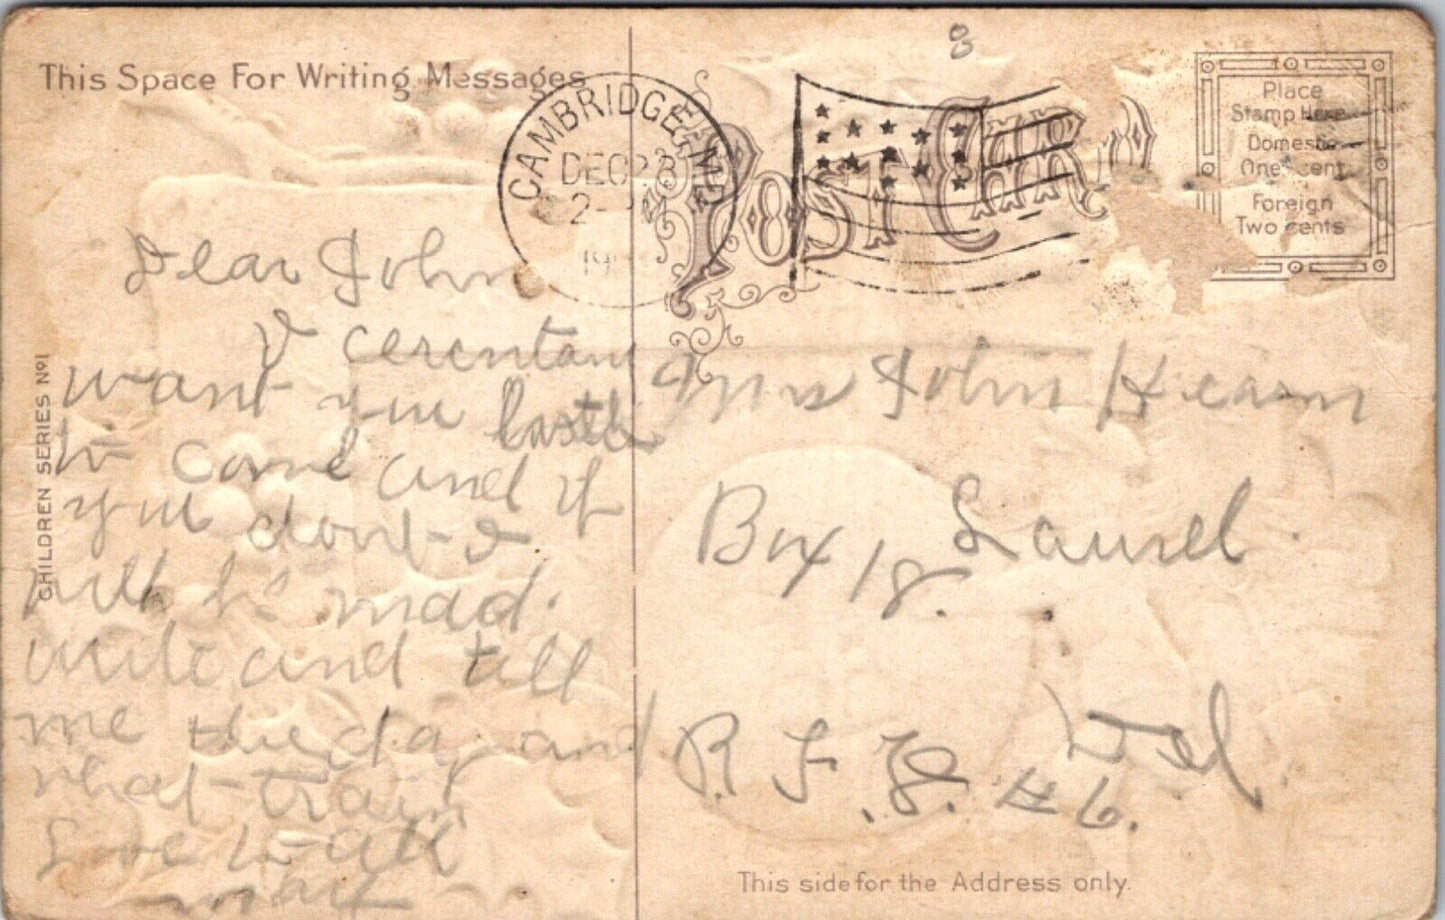 This Space For Writing Messages
CAMBRIDGE, MD.
DEC 23
2-PM
19
8
POST CARD
Place
Stamp Here
Domestic
One cent
Foreign
Two cents
CHILDREN SERIES No1
Dear John
I cerentan
want you
to come and if
you dont I
will be mad.
write and tell
me the day and
what train
Love to all
May
Mrs John Hearn
Box 18. Laurel.
Del.
R. F. D. # 6.
This side for the Address only.